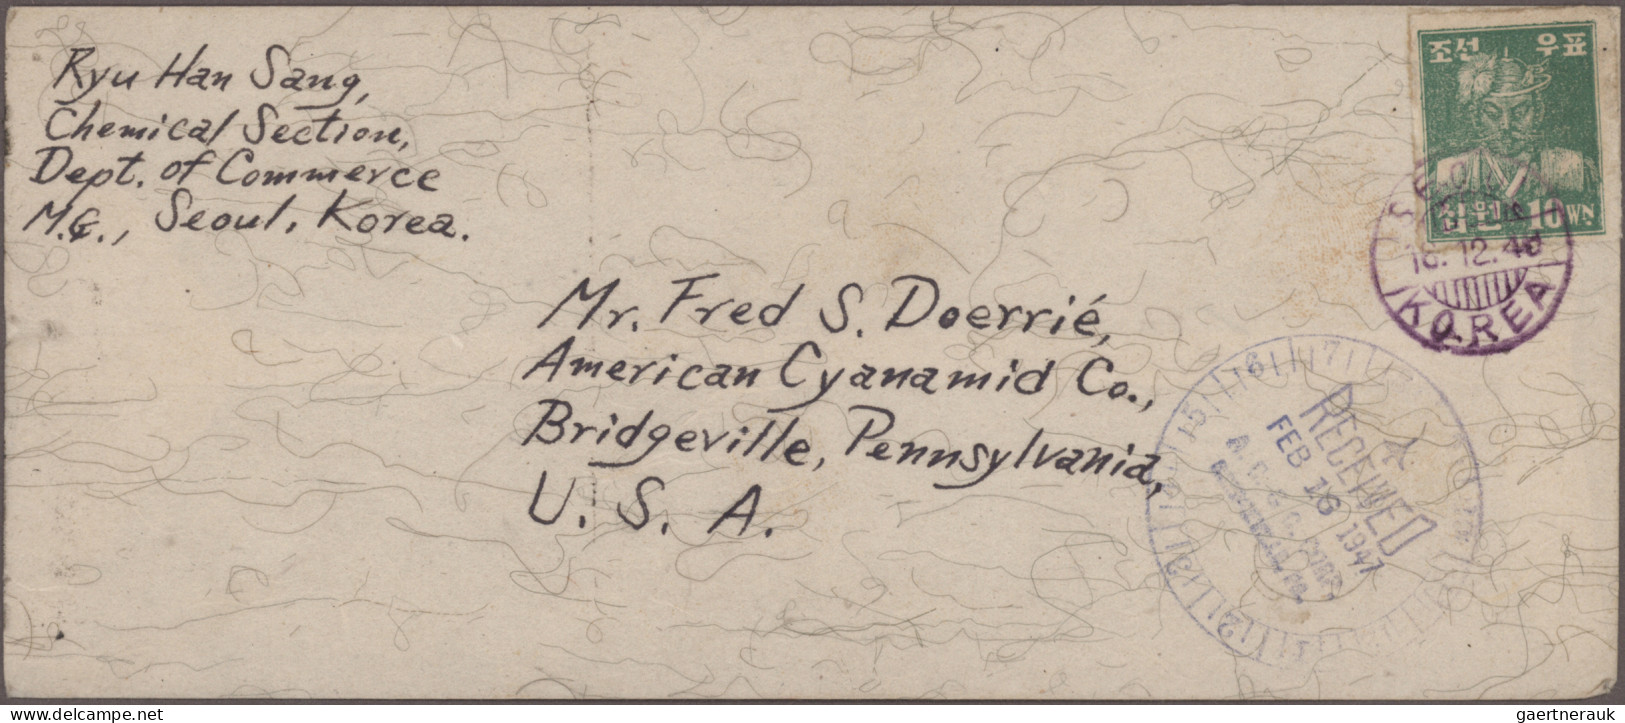 Ryu Han Sang,
Chemical Section,
Dept. of Commerce
M.G., Seoul, Korea.
조선 우표
십원 10 WN
SEOUL
16. 12. 46
KOREA
Mr. Fred S. Doerrié,
American Cyanamid Co.,
Bridgeville, Pennsylvania,
U. S. A.
15 16 17
RECEIVED
FEB 16 1947
A. C. & C. CORP.
BRIDGEVILLE, PA.
gaertnerauk